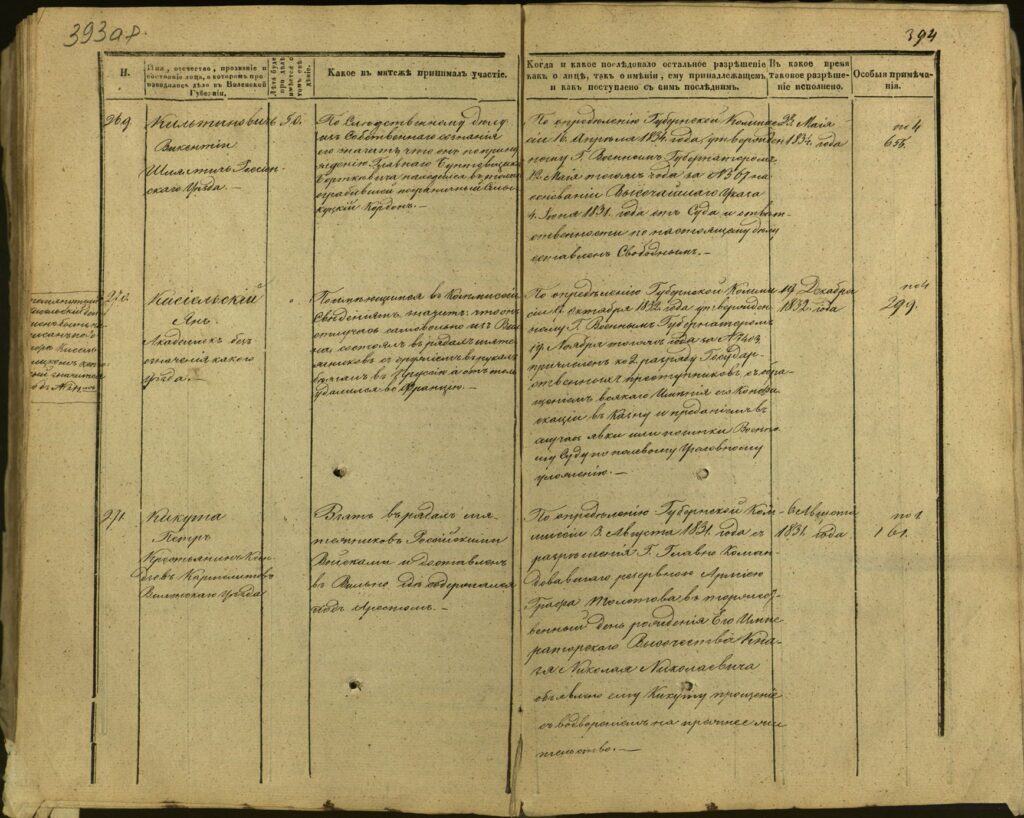 393 а.
394
Н.
Имя, отчество, прозвание и
состояние лица, о котором про
изводилось дело в Виленской
Губернии.
Какое въ мятежѣ принималъ участіе.
Когда и какое последовало остальное разрѣшеніе
какъ о лицѣ, такъ о имѣніи, ему принадлежащемъ,
и какъ поступлено съ симъ послѣднимъ.
Въ какое время
таковое разрѣше-
ніе исполнено.
Особыя примѣча-
нія.
269
Викентій
Шляхтичъ Россіен-
скаго Уѣзда.
По Слѣдственному дѣлу
изъ Собственнаго сознанія
его значитъ что онъ по прину
жденію Главнаго Бунтовщика
находился въ толпѣ
ограбившей пограничный
Кордонъ.
По опредѣленію Губернской Комми-
сіи 16 Апрѣля 1834 года, утвержден
ному Г. Военнымъ Губернаторомъ
12 Маія того жъ года за № 361 на
основаніи Высочайшаго Указа
4 Іюня 1831 года отъ Суда и отвѣт-
ственности по настоящему дѣлу
оставленъ Свободнымъ.
28 Маія
1834 года
по 4
270
Кисѣльскій
Янъ
Академикъ безъ
означенія какого
Уѣзда.
По имѣющимся въ Коммисіи
Свѣденіямъ значитъ что онъ
отлучась самовольно изъ Виль
на, состоялъ въ рядахъ мяте
жниковъ съ оружіемъ въ рукахъ
въ Пруссію а оттоль
удалился во Францію.
По опредѣленію Губернской Комми
сіи 11 Октября 1832 года утвержден
ному Г. Военнымъ Губернаторомъ
19 Ноября того жъ года за № 7403
причтенъ ко 2 разряду Государ-
ственныхъ преступниковъ, съ обра-
щеніемъ всякаго Имѣнія его Конфи-
скаціи въ Казну и преданіемъ въ
случаѣ явки или поимки Воен
му Суду по полевому Уголовному
уложенію.
19 Декабря
1832 года
по 4
299.
271
Кикута
Петръ
Крестьянинъ
Кармелитовъ
Виленскаго Уѣзда
Взятъ въ рядахъ мя-
тежниковъ Россійскими
Войсками и доставленъ
въ Вильно гдѣ содержался
подъ арестомъ.
По опредѣленію Губернской Ком-
мисіи 3 Августа 1831 года съ
разрѣшенія Г. Главно Коман-
довавшаго резервною Арміею
Графа Толстова въ торжест-
венный день рожденія Его Импе
раторскаго Высочества Кня-
зя Николая Николаевича
объявлено ему Кикуту прощеніе
съ водвореніемъ на прежнее жи
тельство.
6 Августа
1831 года
по 1
161.